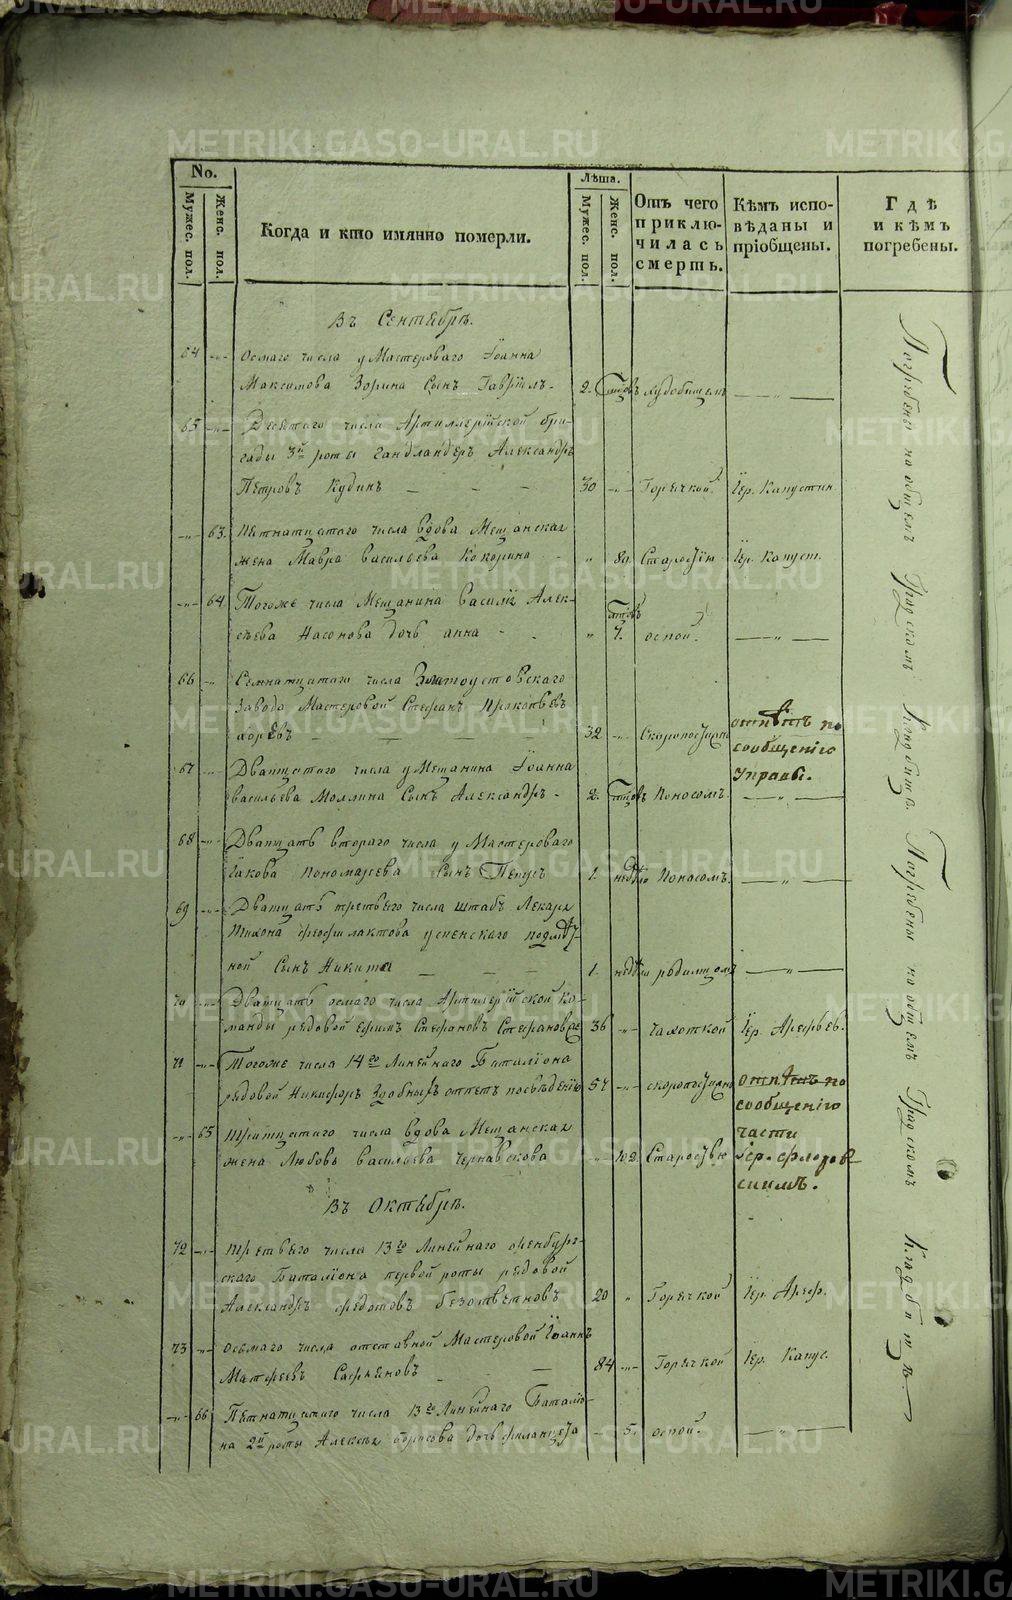 METRIKI.GASO-URAL.RU
No.
Мужес. пол.
Женс. пол.
Когда и кто имянно померли.
Лѣта.
Мужес. пол.
Женс. пол.
Отъ чего приклю-чилась смерть.
Кѣмъ испо-вѣданы и пріобщены.
Гдѣ и кѣмъ погребены.
Въ Сентябрѣ.
64 -„- осмаго числа у Мастероваго Іоанна
Максимова Зорина сынъ Гавріилъ - 2. худобищемъ —„—
65 -„- Десятаго числа Артиллерійской бри-
гады 3й роты гандлангеръ Александръ
Петровъ Кудинъ — — — 30 -„- Горячкой. Іер. Капустин.
-„- 63. Пятнатцатаго числа вдова Мещанская
жена Мавра Васильева Кокорина - „ 80. Старостію Іер. Капуст.
-„- 64 Тогоже числа Мещанина Василія Алек-
сѣева Насонова дочь Анна - - „ 7. оспой. —„—
66 -„- Семнатцатаго числа Златоустовскаго
завода Мастеровой Стефанъ Прокопьевъ
— — — 32 -„- Скоропостижно отпѣтъ по
сообщенію
Управы.
67 -„- Дватцатаго числа у Мещанина Іоанна
Васильева Моллина сынъ Александръ - 2. Поносомъ. —„—
68 -„- Дватцать втораго числа у Мастероваго
Іакова Пономарева сынъ Петръ 1. недѣль Поносомъ. —„—
69 -„- Дватцать третьяго числа штабъ Лекаря
Тихона Феофилактова Успенскаго
сынъ Никита — — 1. недѣли родимцомъ —„—
70 -„- Дватцать осмаго числа Артилерійской ко-
манды рядовой Ефимъ Стефановъ Стефановъ 36 -„- чахоткой Іер. Арефьев.
71 -„- Тогоже числа 14го Линейнаго Баталіона
рядовой Никифоръ отпетъ посвѣденію 57 -„- скоропостижно отпѣтъ по
сообщенію
части
-„- 65 Тритцатаго числа вдова Мещанская
жена Любовь Васильева Чернавскова „ 102. Старостью Іер. Флоров
скимъ.
Въ Октябрѣ.
72 -„- Третьяго числа 13го Линейнаго Оренбург-
скаго Баталіона первой роты рядовой
Александръ Федотовъ Безответновъ 20 „ Горячкой Іер. Ареф.
73 -„- Осьмаго числа отставной Мастеровой Іоаннъ
Матфеевъ Сафьяновъ - — 84 -„- Горячкой Іер. Капус.
-„- 66 Пятнатцатаго числа 13го Линейнаго Баталіо-
на 2й роты Алексѣя Борисова дочь - 5. оспой. —„—
Погребены на общемъ Градскомъ Кладбищѣ. Погребены на общемъ Градскомъ Кладбищѣ